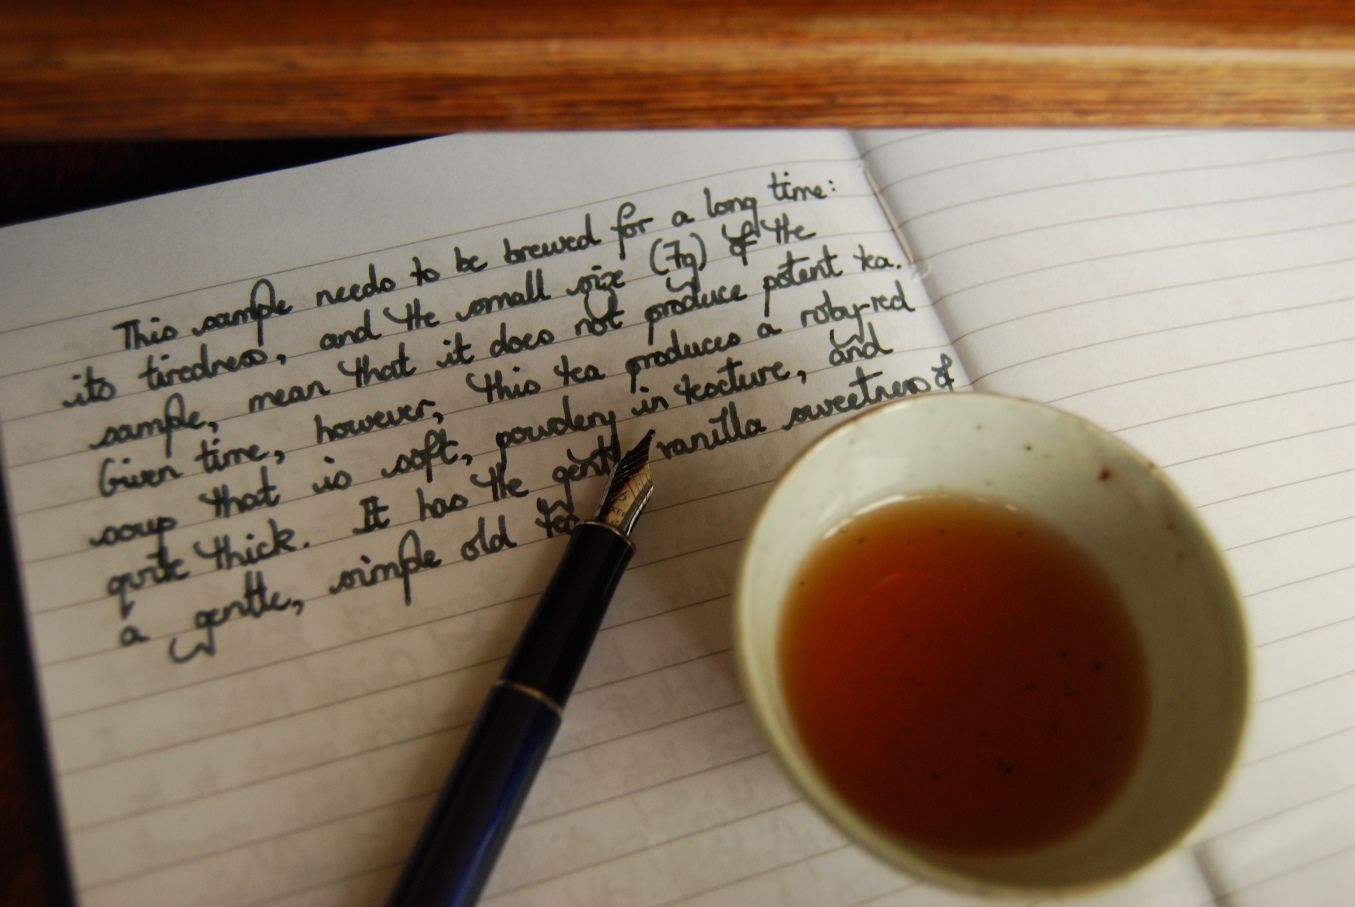 This sample needs to be brewed for a long time:
its tiredness, and the small size (7g) of the
sample, mean that it does not produce potent tea.
Given time, however, this tea produces a roby-red
soup that is soft, powdery in texture, and
quite thick. It has the gentle vanilla sweetness of
a gentle, simple old tea